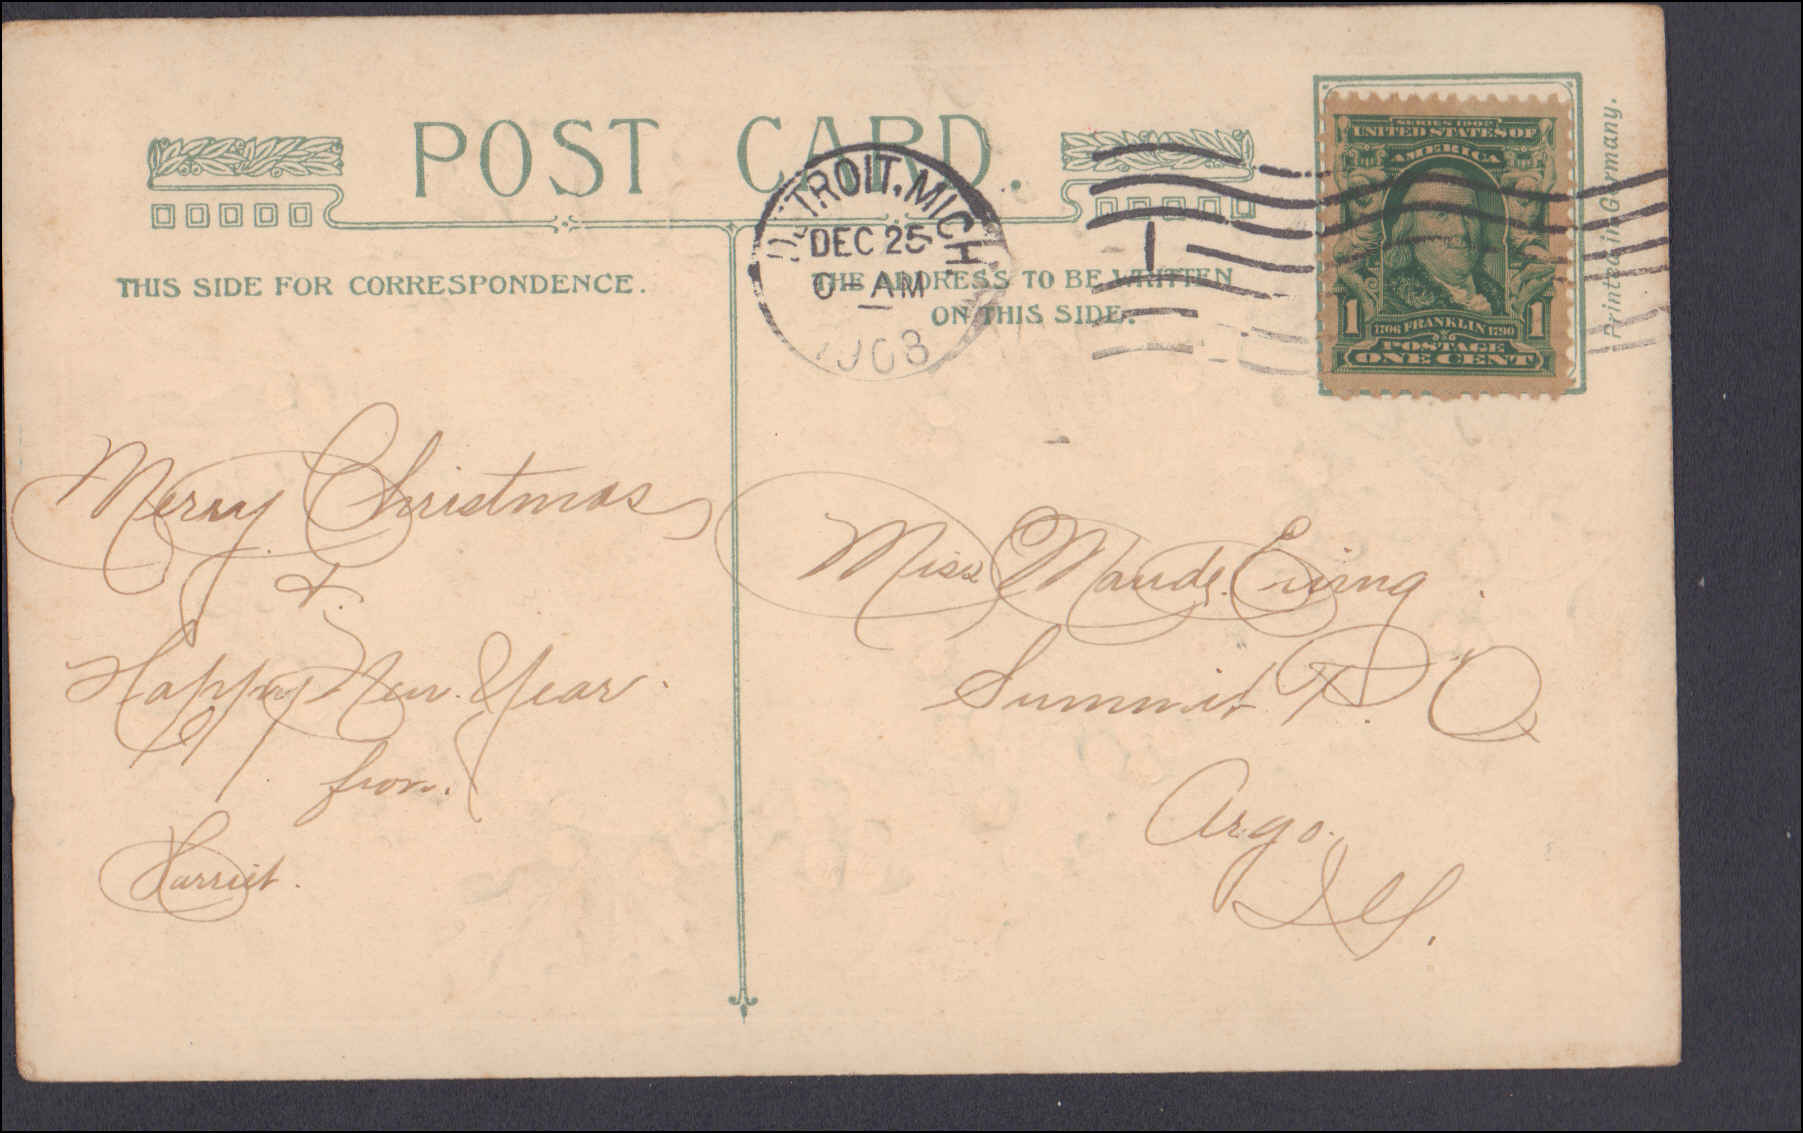 POST CARD.
THIS SIDE FOR CORRESPONDENCE.
THE ADDRESS TO BE WRITTEN
ON THIS SIDE.
DETROIT, MICH.
DEC 25
AM
1908
1
SERIES 1902
UNITED STATES OF
AMERICA
1 1706 FRANKLIN 1790 1
POSTAGE
ONE CENT
Printed in Germany.
Merry Christmas
&.
Happy New Year.
from.
Harriet.
Miss Maude
Summit P. O.
Argo.
Ill.